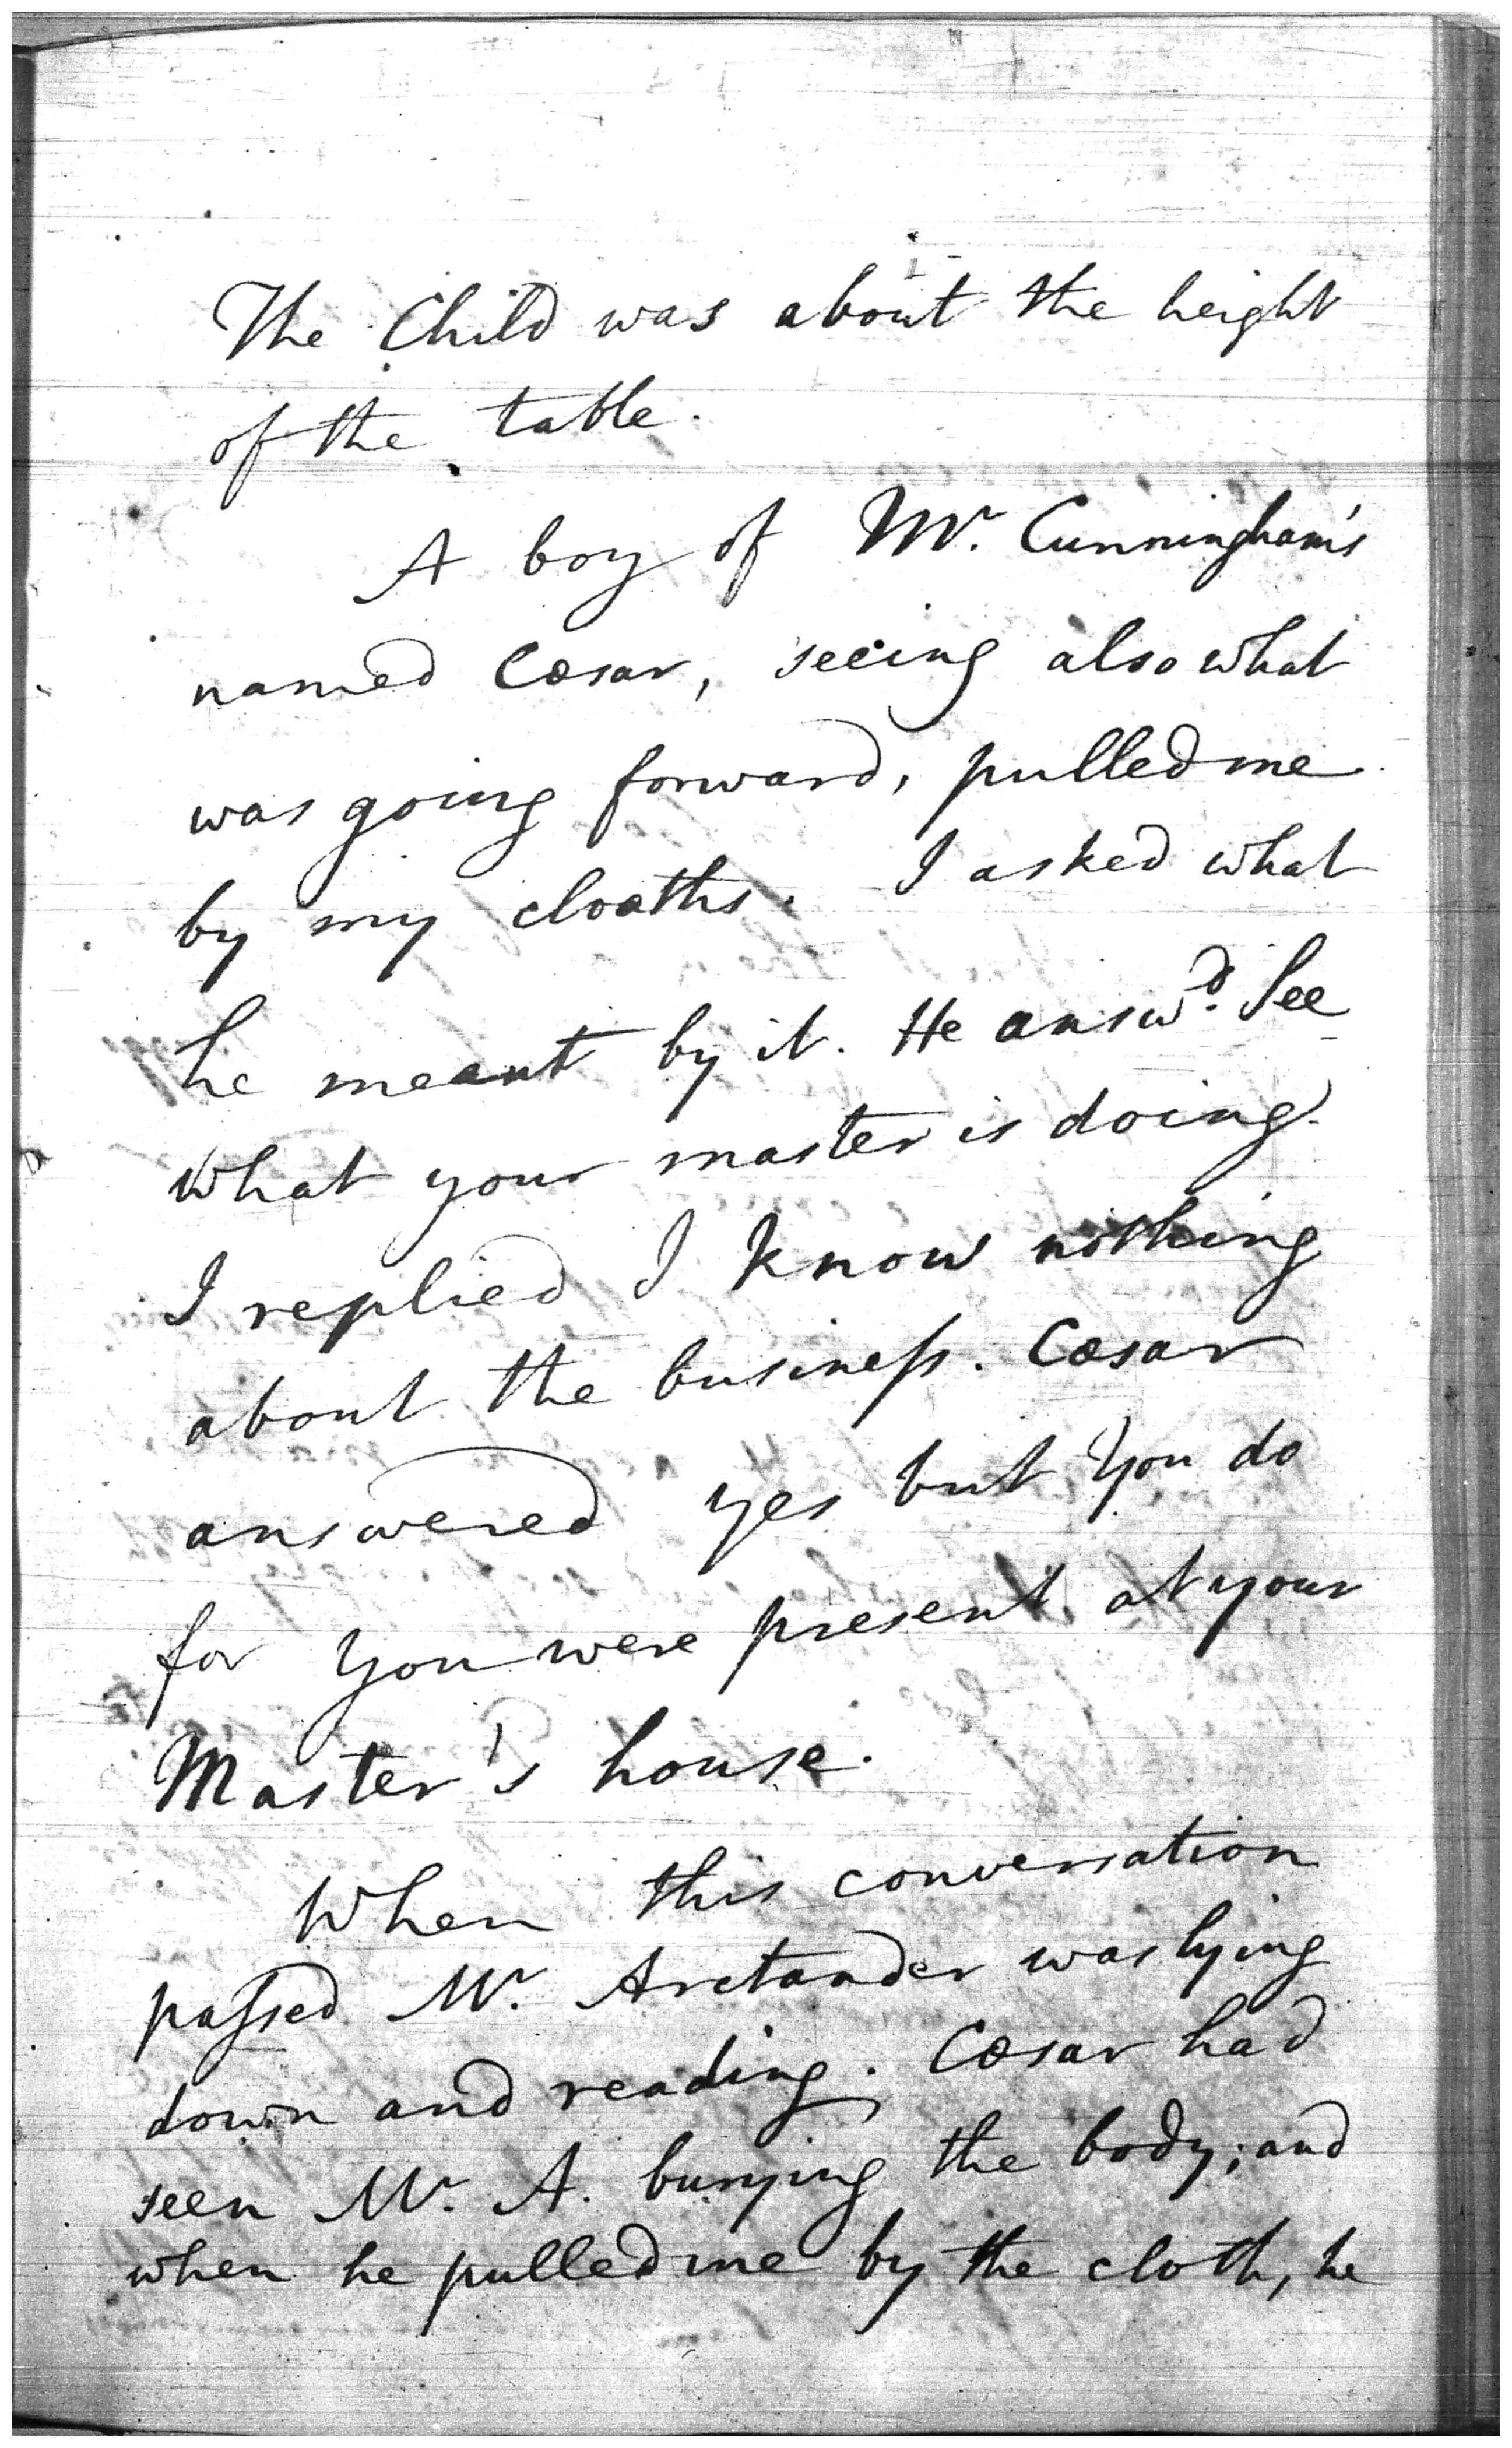 The Child was about the height
of the table.
A boy of Mr. Cunningham's
named Cæsar, seeing also what
was going forward, pulled me
by my cloaths. I asked what
he meant by it. He answd. See
what your master is doing.
I replied I know nothing
about the business. Cæsar
answered yes but you do
for you were present at your
Master's house.
When this conversation
passed Mr. Arctander was lying
down and reading. Cæsar had
seen Mr. A. burying the body; and
when he pulled me by the cloth, he